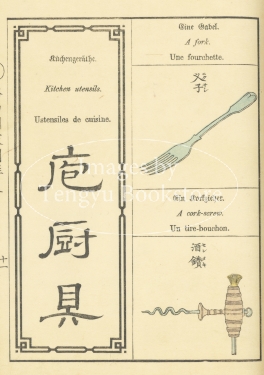 Küchengeräthe.
Kitchen utensils.
Ustensiles de cuisine.
庖厨具
Eine Gabel.
A fork.
Une fourchette.
Ein Stopfzieher.
A cork-screw.
Un tire-bouchon.
酒鑽
Images by
Tengyu Books